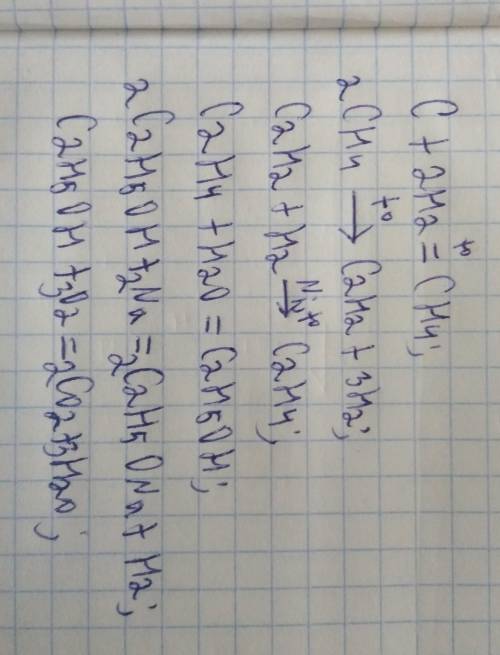 C + 2H2 =t° CH4;
2CH4 t°→ C2H2 + 3H2;
C2H2 + H2 Ni, t°→ C2H4;
C2H4 + H2O = C2H5OH;
2C2H5OH + 2Na = 2C2H5ONa + H2;
C2H5OH + 3O2 = 2CO2 + 3H2O;